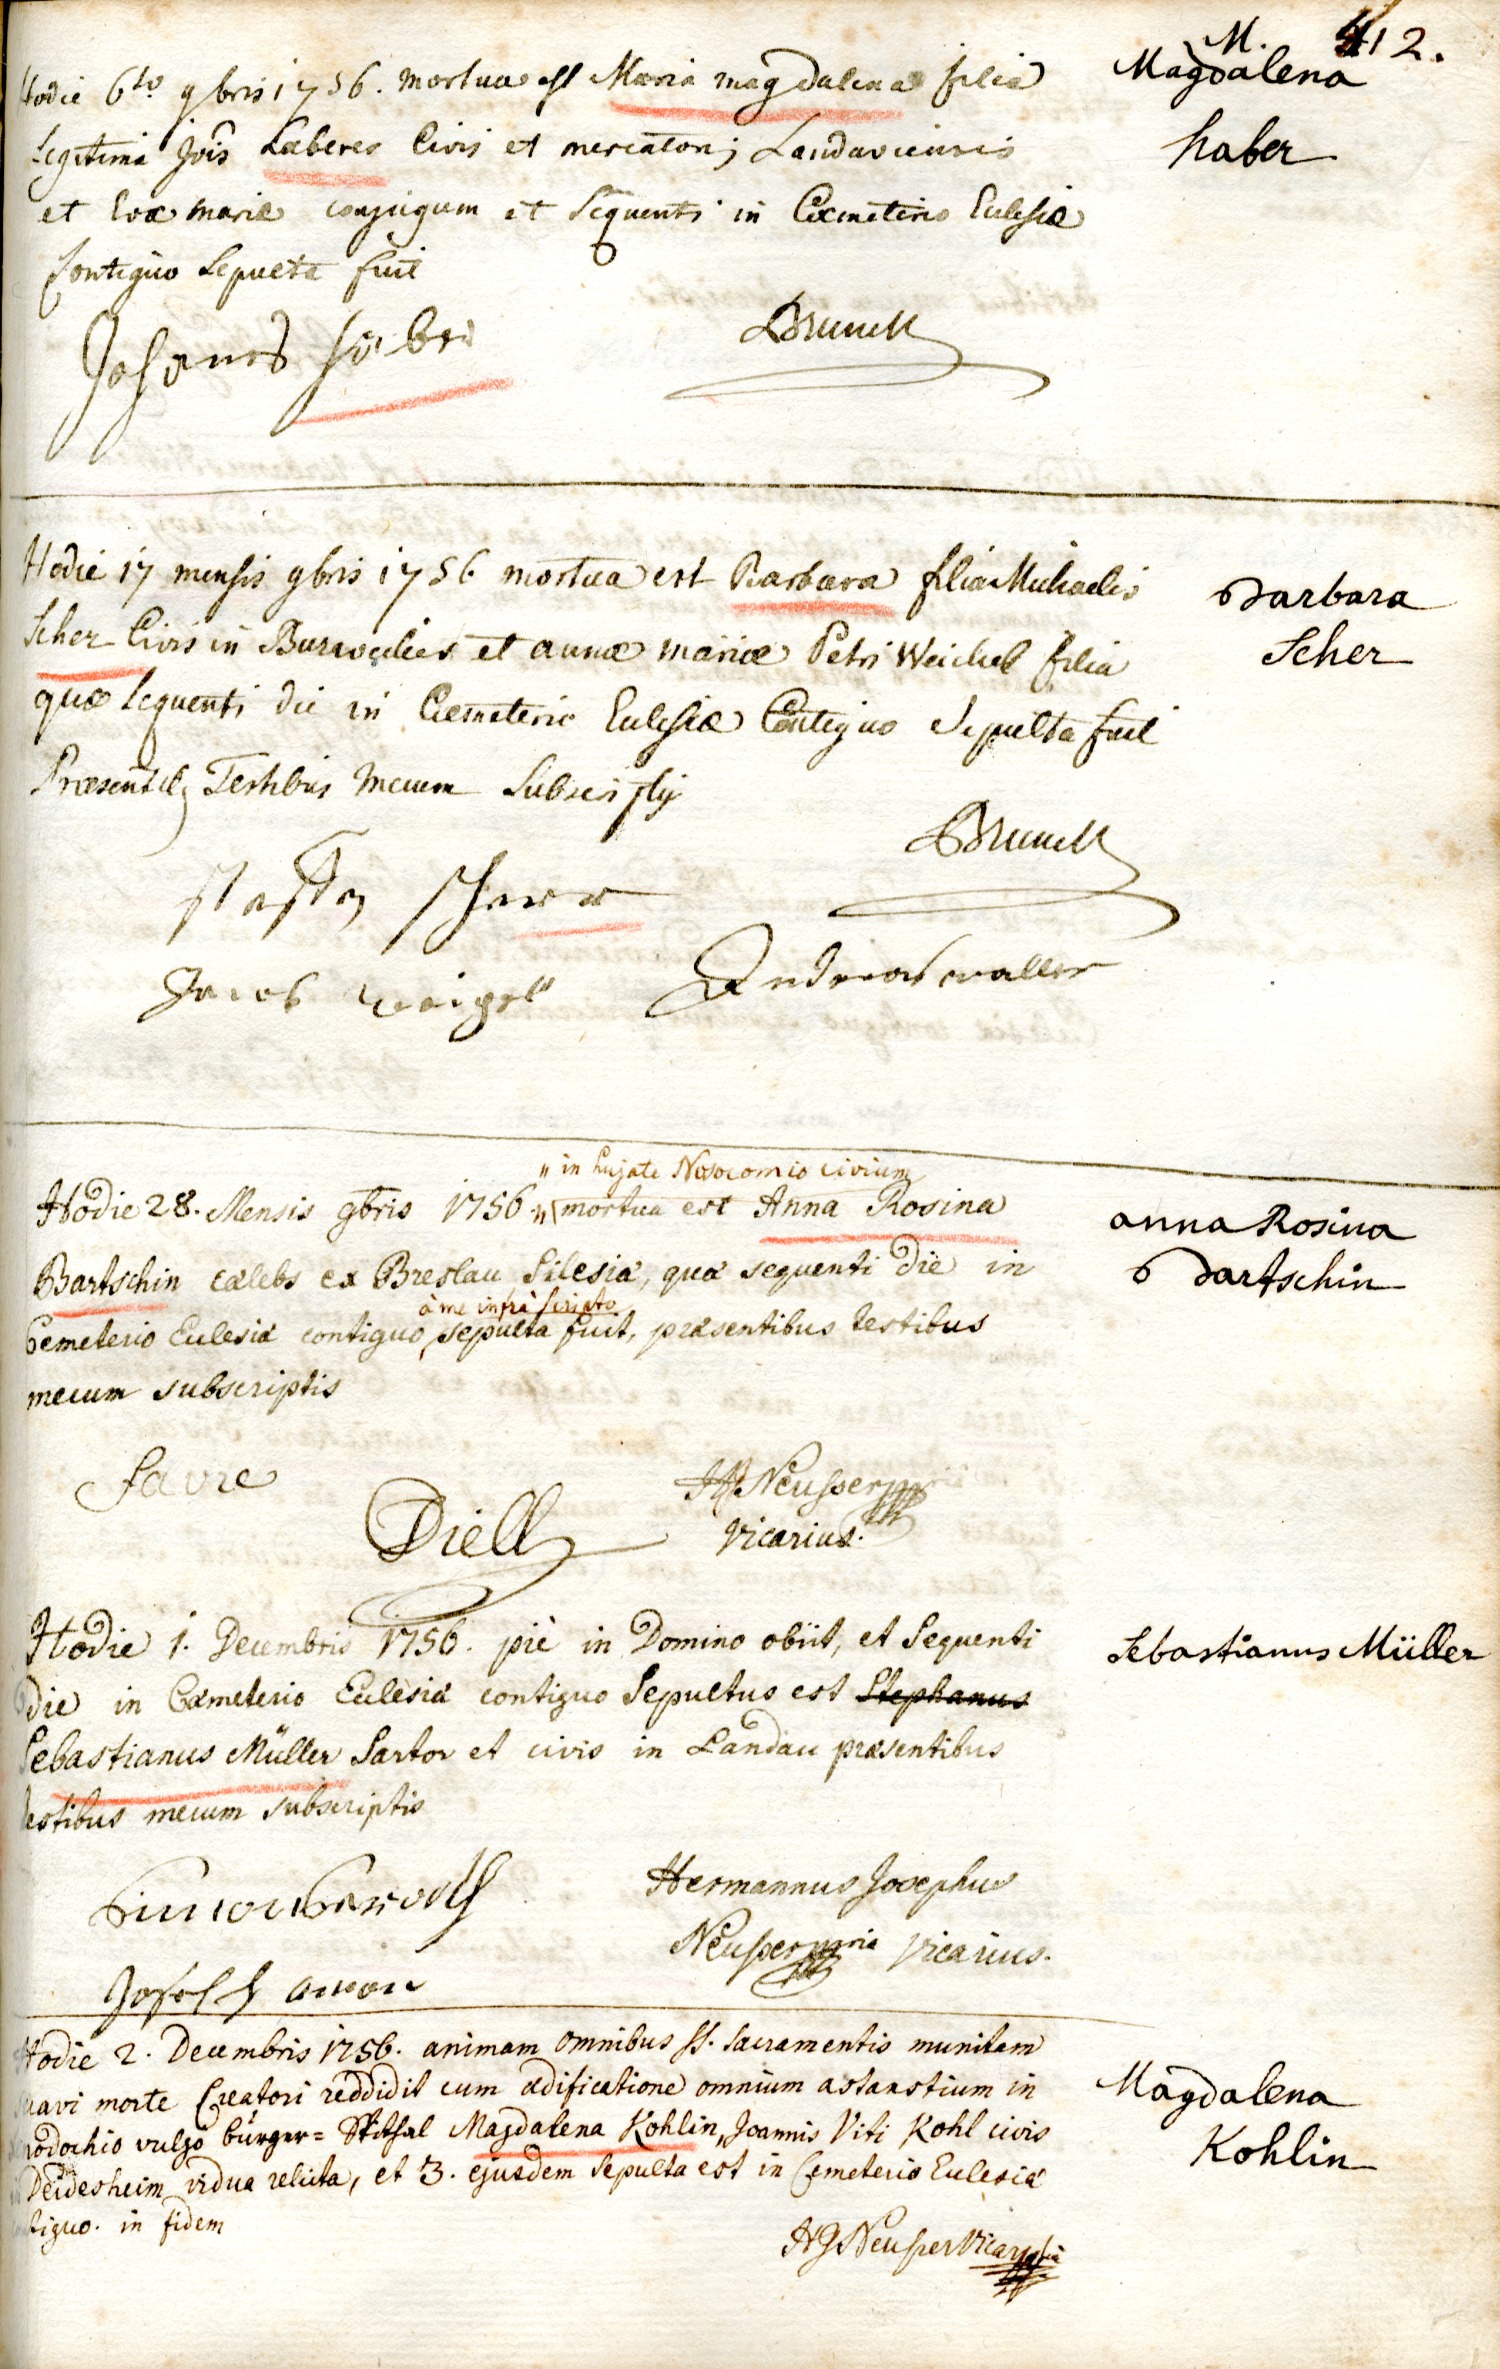 412.
Hodie 6to 9bris 1756. mortua est Maria magdalena filia
M.
Magdalena
haber
legitima Jois Læberes Civis et mercatoris Landaviensis
et Evæ mariæ conjugum et sequenti in Cœmeterio Eclesiæ
Contiguo sepulta fuit
Johanes
Brunck
Hodie 17 mensis 9bris 1756 mortua est Barbara filia Michaelis
Scher Civis in Burweiler et annæ mariæ Petri Weichel filia
quæ sequenti die in Cœmeterio Eclesiæ Contiguo sepulta fuit
Præsentib9 Testibus mecum subscriptis
Barbara
Scher
Brunck
Jacob
Andreas waller
"in hujate Nosocomio civium
Hodie 28. Mensis 9bris 1756 " mortua est Anna Rosina
Bartschin cælebs ex Breslau Silesiæ, quæ sequenti die in
à me infra scripto
Cemeterio Eclesiæ contiguo sepulta fuit, præsentibus testibus
mecum subscriptis
anna Rosina
Bartschin
Favre
Diell
HJ Neusser mpria
Vicarius.
Hodie 1. Decembris 1756. piè in Domino obiit, et sequenti
die in Cœmeterio Eclesiæ contiguo sepultus est Stephanus
Sebastianus Müller Sartor et civis in Landau præsentibus
testibus mecum subscriptis
Sebastianus Müller
Hermannus Josephus
Neusser mpria Vicarius.
Joseph
Hodie 2. Decembris 1756. animam omnibus ss. sacramentis munitam
suavi morte Creatori reddidit cum ædificatione omnium astanstium in
vulgo bürger= Spithal Magdalena Kohlin, Joannis Viti Kohl civis
in Deidesheim vidua relicta, et 3. ejusdem sepulta est in Cemeterio Eclesiæ
contiguo. in fidem
Magdalena
Kohlin
HJ Neusser Vicar mpria